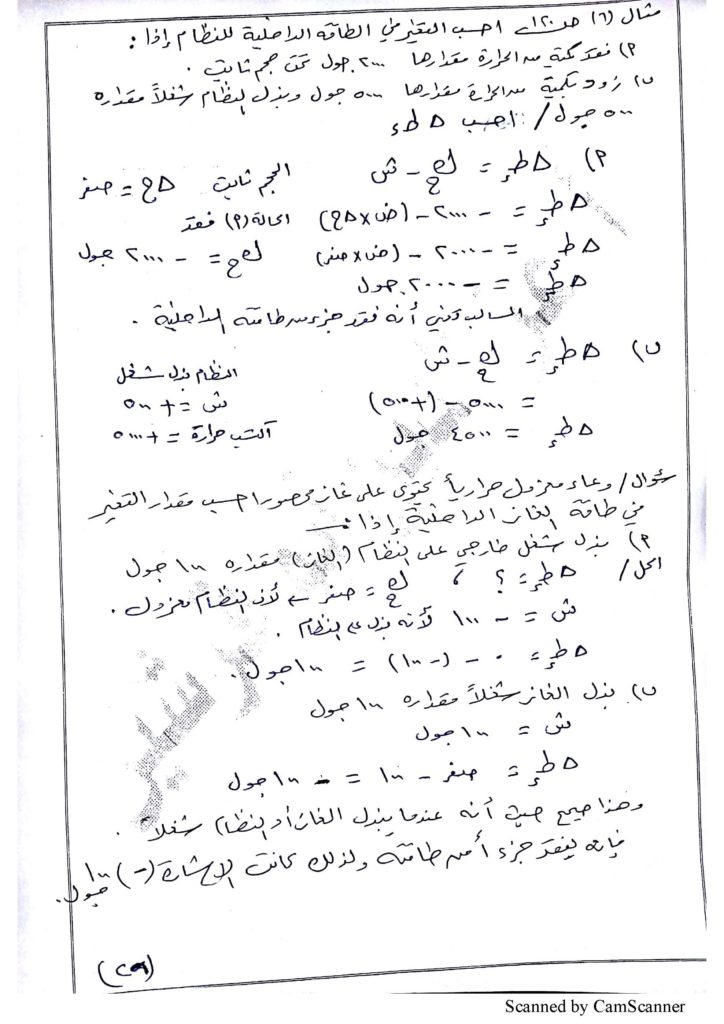 مثال (٦) ص ١٢٠ احسب التغير في الطاقة الداخلية للنظام إذا :
٩) فقد كمية من الحرارة مقدارها ٢٠٠٠ جول تحت حجم ثابت .
ب) زود بكمية من الحرارة مقدارها ٥٠٠٠ جول وبذل النظام شغلاً مقداره
٥٠٠ جول / احسب ∆ طء
٩) ∆ طإ = كح - ش الحجم ثابت ∆ ح = صفر
∆ طإ = - ٢٠٠٠ - (ض × ∆ح) الحالة (٩) فقد
∆ طإ = - ٢٠٠٠ - (ض × صفر) كح = - ٢٠٠٠ جول
∆ طإ = - ٢٠٠٠ جول
السالب تعني أنه فقد جزء من طاقته الداخلية .
ب) ∆ طإ = كح - ش النظام بذل شغل
= ٥٠٠٠ - (+٥٠٠) ش = + ٥٠٠
∆ طإ = ٤٥٠٠ جول اكتسب حرارة = + ٥٠٠٠
سؤال / وعاء معزول حرارياً يحتوي على غاز محصور احسب مقدار التغير
في طاقة الغاز الداخلية إذا :
٩) بذل شغل خارجي على النظام (الغاز) مقداره ١٠٠ جول
الحل / ∆ طإ = ؟ ، كح = صفر ← لأن النظام معزول .
ش = - ١٠٠ لأنه بذل على النظام .
∆ طإ = ٠ - (-١٠٠) = ١٠٠ جول .
ب) بذل الغاز شغلاً مقداره ١٠٠ جول
ش = ١٠٠ جول
∆ طإ = صفر - ١٠٠ = - ١٠٠ جول
وهذا صحيح حيث أنه عندما يبذل الغاز أو النظام شغلاً .
فإنه يفقد جزء أ من طاقته ولذلك كانت الإشارة (-) ١٠٠ جول.
(٢٩)
Scanned by CamScanner